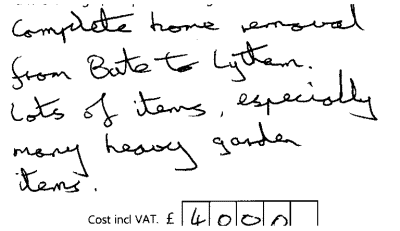 Complete home removal
from Bate to Lytham.
Lots of items, especially
many heavy garden
items.
Cost incl VAT. £ 4000